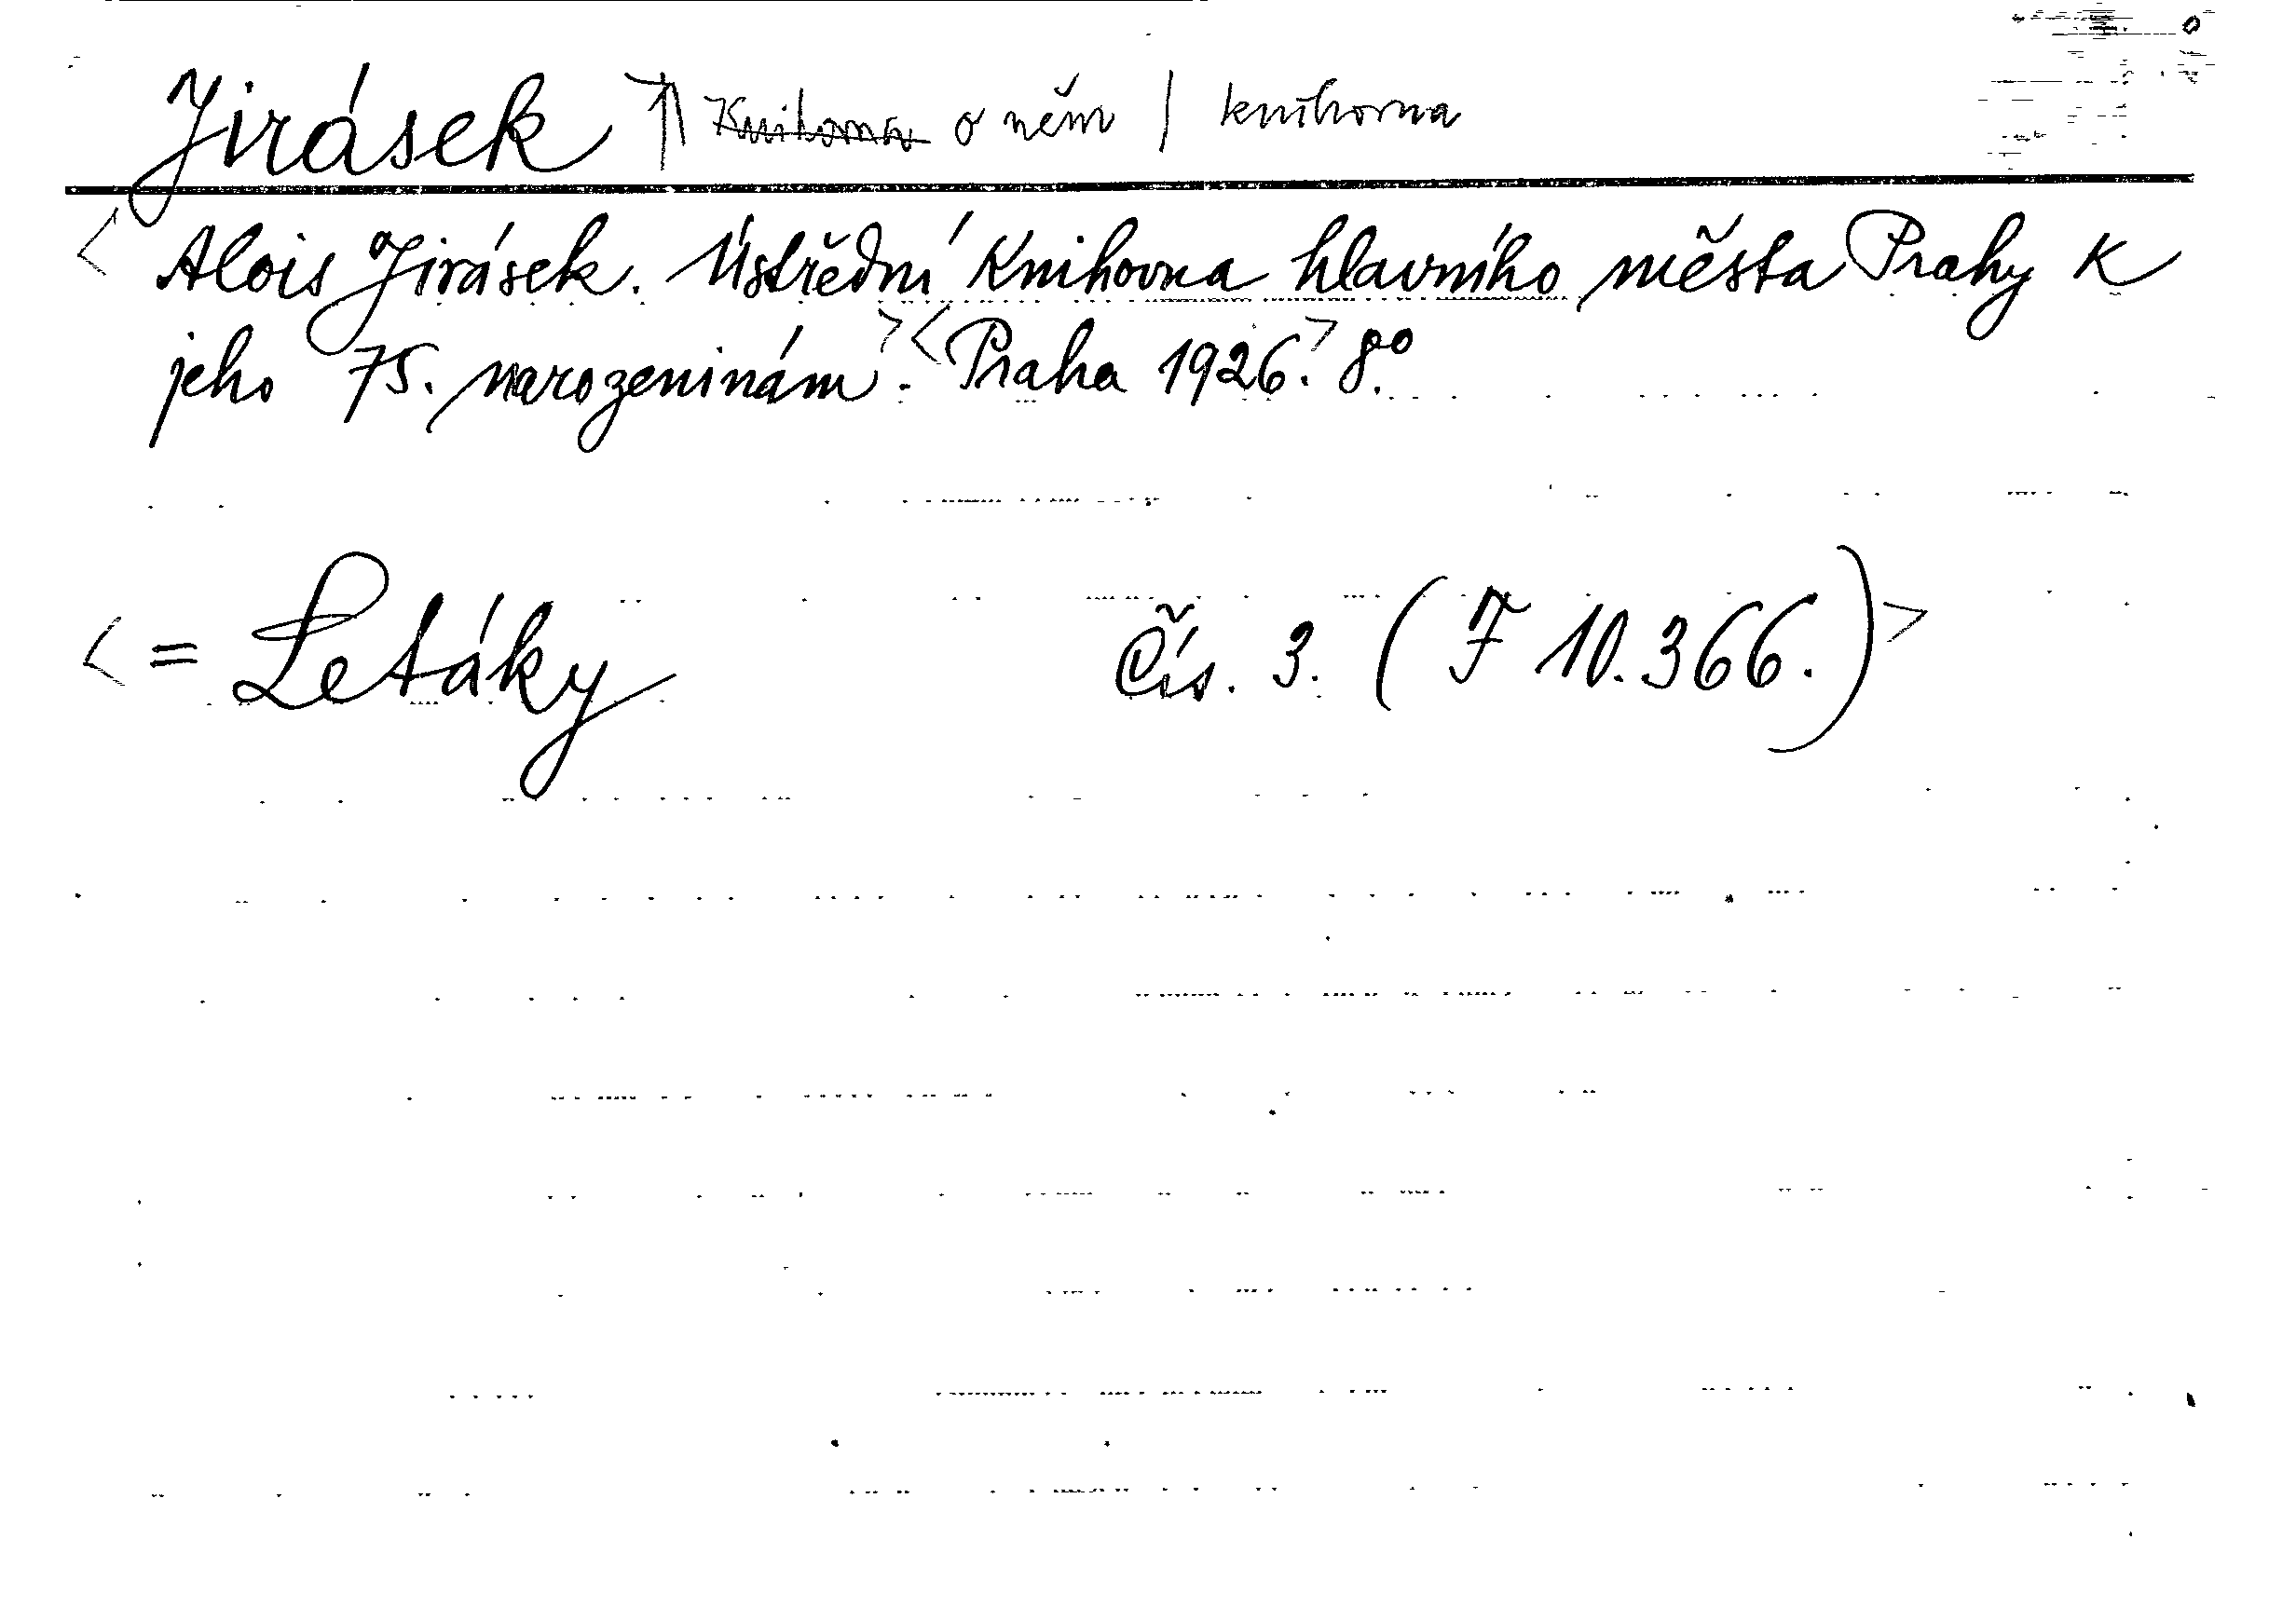 Jirásek ~~Knihovna~~ o něm | knihovna
< Alois Jirásek. Ústřední Knihovna hlavního města Prahy k
jeho 75. narozeninám. > < Praha 1926. > 8°.
< = Letáky Čís. 3. (F 10.366.) >